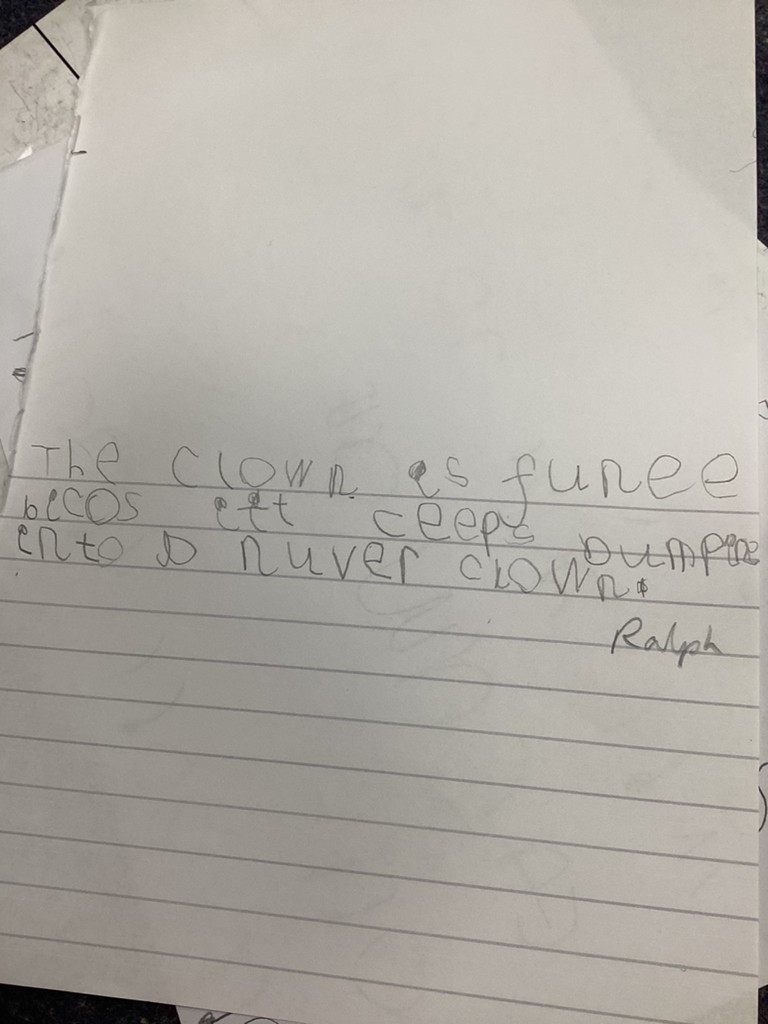 The clown es funee
becos ett ceeps bumpee
ento D nuver clown.
Ralph